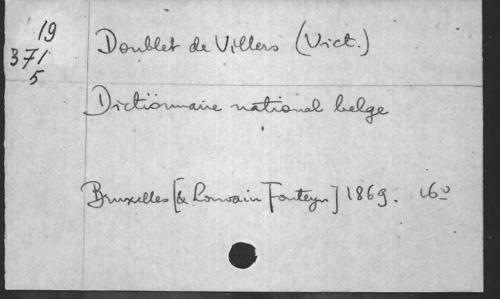 19
371
5
Doublet de Villers (Vict.)
Dictionnaire national belge
Bruxelles [& Louvain Fonteyn] 1869. 16°